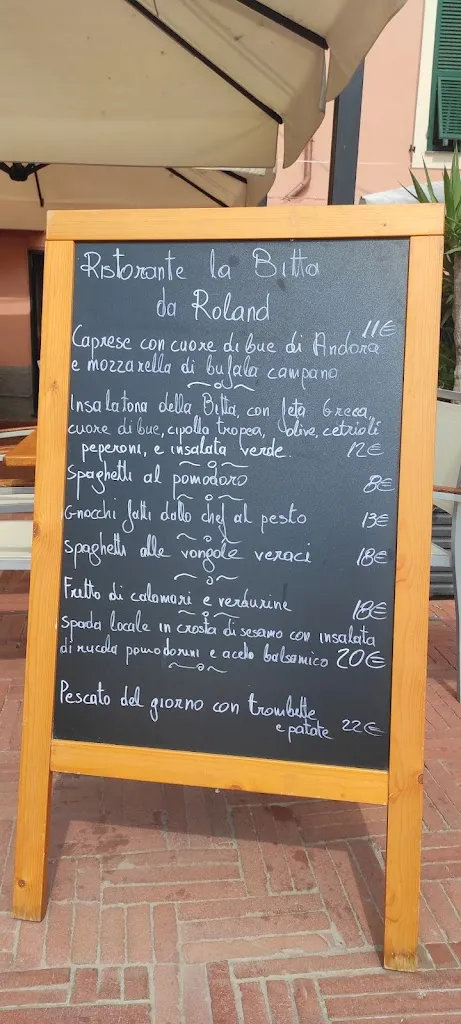 Ristorante la Bitta
da Roland
11€
Caprese con cuore di bue di Andora
e mozzarella di bufala campana
Insalatona della Bitta, con feta Greca,
cuore di bue, cipolla tropea, olive, cetrioli
peperoni, e insalata verde. 12€
Spaghetti al pomodoro 8€
Gnocchi fatti dallo chef al pesto 13€
Spaghetti alle vongole veraci 18€
Fritto di calamari e verdurine 18€
Spada locale in crosta di sesamo con insalata
di rucola pomodorini e aceto balsamico 20€
Pescato del giorno con trombette
e patate 22€